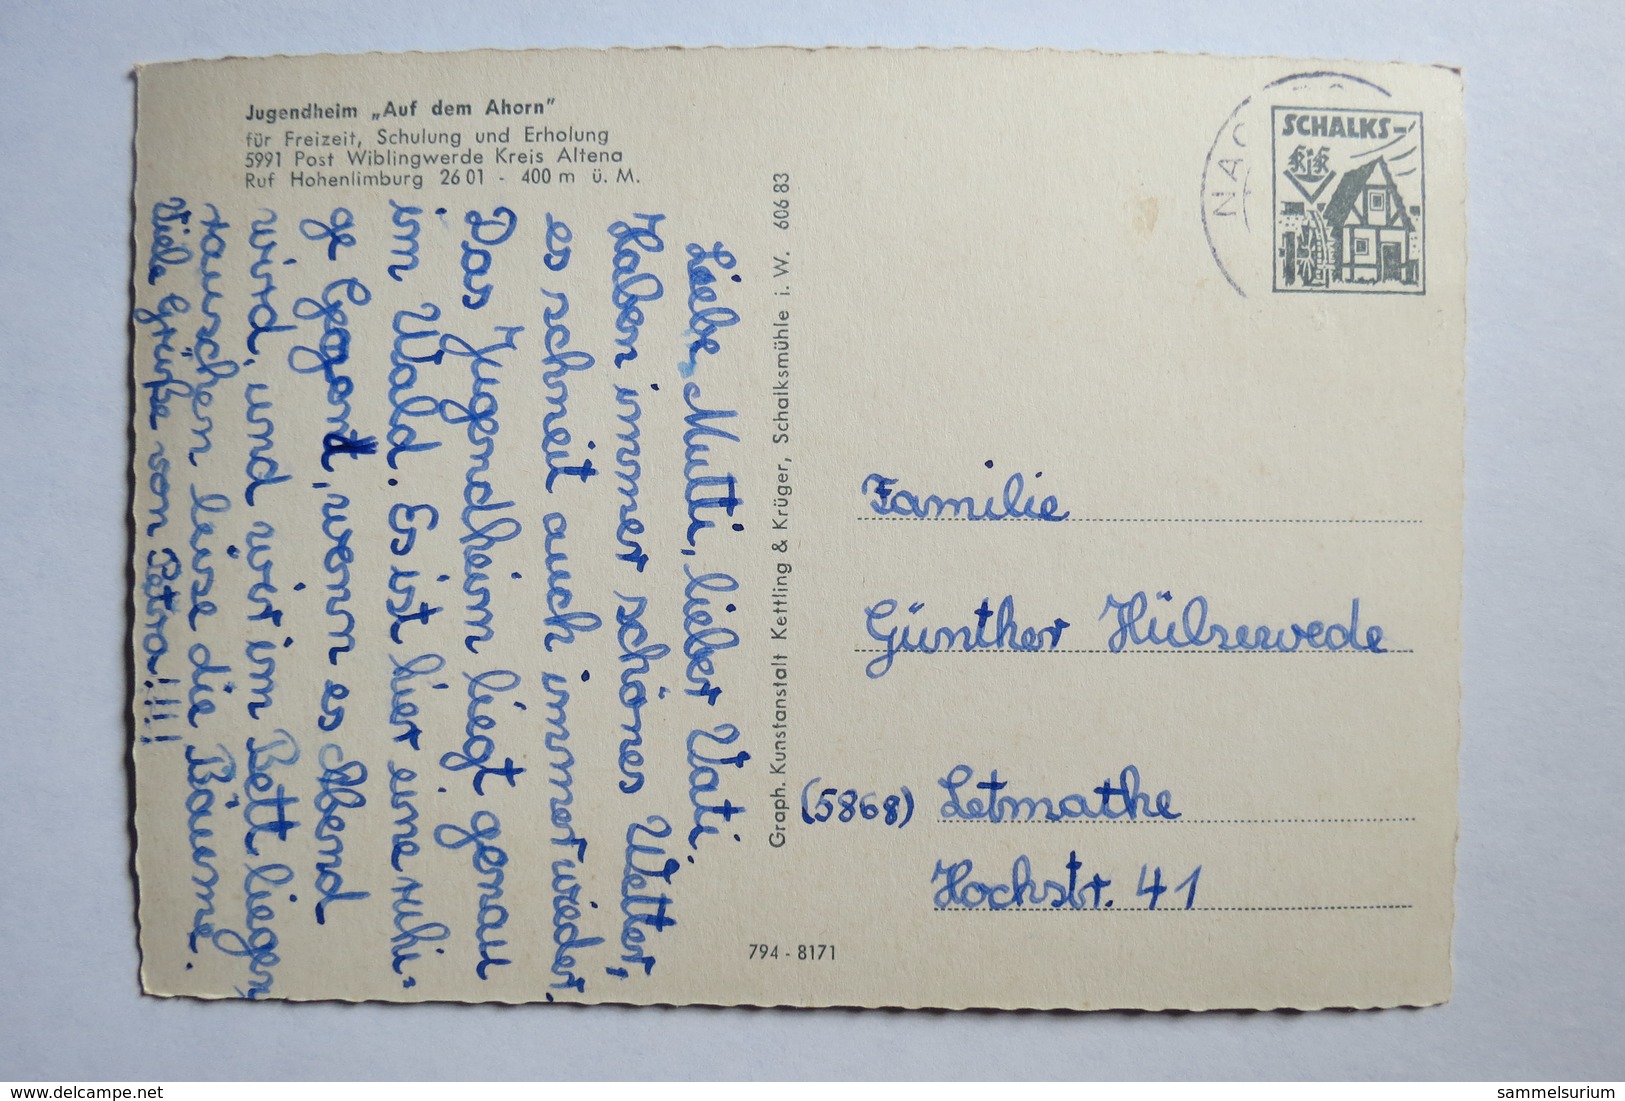 Jugendheim „Auf dem Ahorn"
für Freizeit, Schulung und Erholung
5991 Post Wiblingwerde Kreis Altena
Ruf Hohenlimburg 26 01 - 400 m ü. M.
Liebe Mutti, lieber Vati.
Haben immer schönes Wetter,
es schneit auch immer wieder.
Das Jugendheim liegt genau
im Wald. Es ist hier eine ruhi-
ge Gegend, wenn es Abend
wird, und wir im Bett liegen,
rauschen leise die Bäume.
Viele Grüße von Petra!!!!
Graph. Kunstanstalt Kettling & Krüger, Schalksmühle i. W. 606 83
794 - 8171
NAC
SCHALKS-
KiK
Familie
Günther Hülsewede
(5868) Letmathe
Hochstr. 41
delcampe.net
sammelsurium